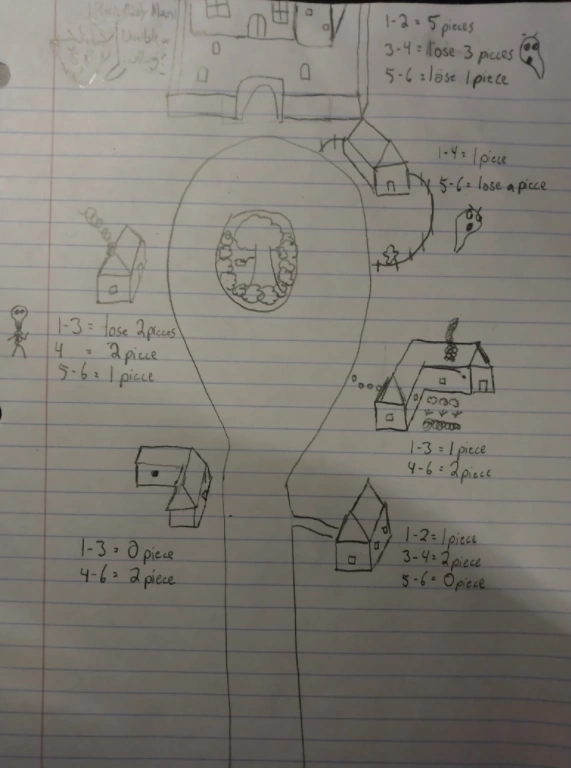 1-2 = 5 pieces
3-4 = lose 3 pieces
5-6 = lose 1 piece
1-4 = 1 piece
5-6 = lose a piece
1-3 = lose 2 pieces
4 = 2 piece
5-6 = 1 piece
1-3 = 1 piece
4-6 = 2 piece
1-3 = 0 piece
4-6 = 2 piece
1-2 = 1 piece
3-4 = 2 piece
5-6 = 0 piece